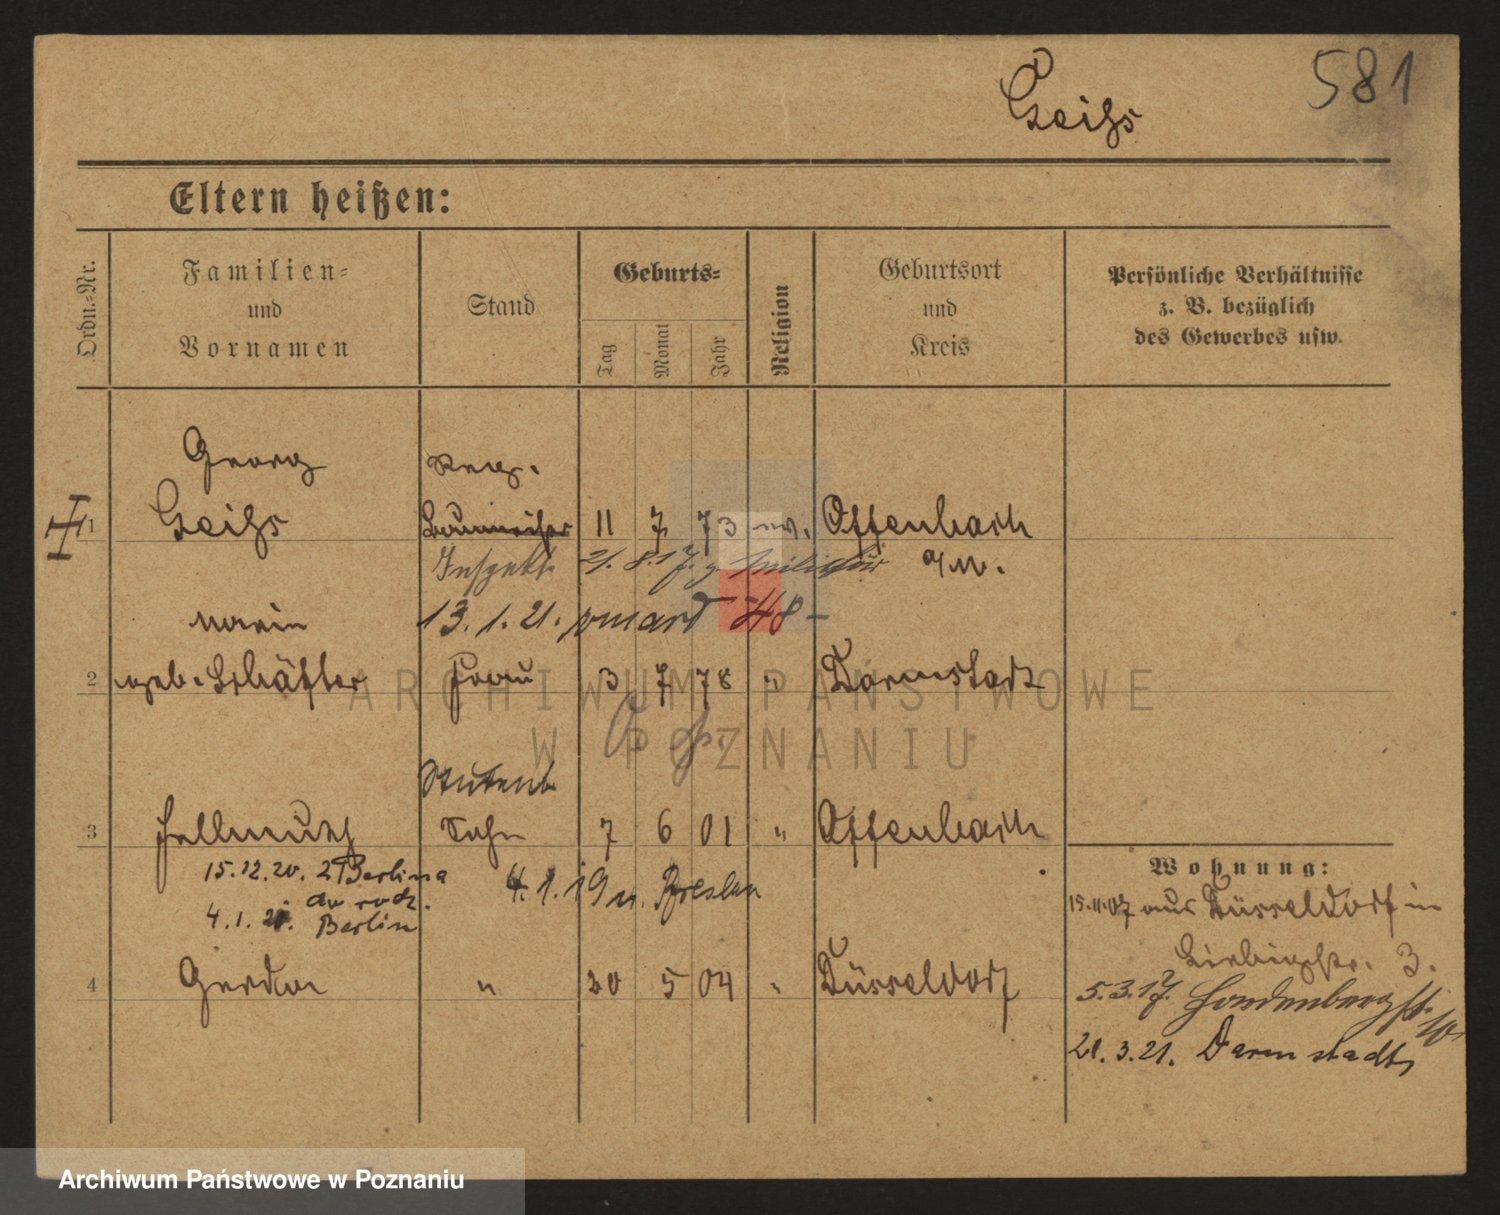 581
Geihs
Eltern heißen:
Ordn.=Nr.
Familien=
und
Vornamen
Stand
Geburts=
Tag
Monat
Jahr
Religion
Geburtsort
und
Kreis
Persönliche Verhältnisse
z. B. bezüglich
des Gewerbes usw.
Georg
Reg.
1 Geihs Baumeister 11 7 73 ev. Offenbach
a/M.
21. 8. 17. z. Militär
13. 1. 21. 48
Marie
2 geb. Schäffer Frau 3 7 78 " Darmstadt
Student
3 Hellmuth Sohn 7 6 01 " Offenbach
15.12.20. Berlin
4. 1. 19 n. Breslau
4. 1. 21. Berlin
4 Gerda " 20 5 04 " Düsseldorf
Wohnung:
15.11.07 aus Düsseldorf in
Liebigstr. 3.
5.3.17. Hardenbergstr. 10
21. 3. 21. Darmstadt
ARCHIWUM PAŃSTWOWE
W POZNANIU
Archiwum Państwowe w Poznaniu